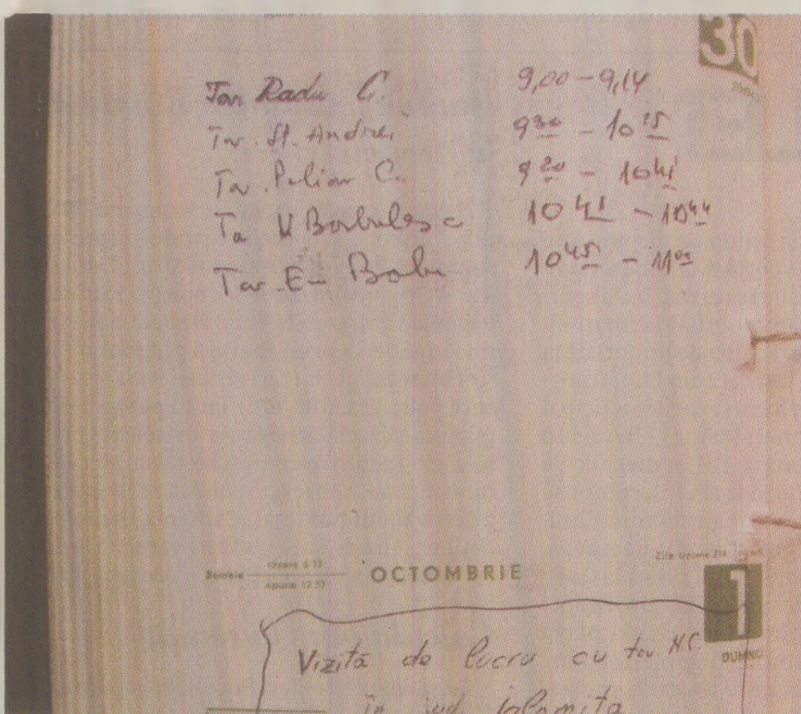 30
Tov. Radu C. 9,00 – 9,14
Tov. Șt. Andrei 9 30 – 10 15
Tov. C. 9 20 – 10 41
To V Barbulesc 10 41 – 10 44
Tov. Em Bobu 10 45 – 11 00
Soarele răsare 6 13 OCTOMBRIE
apune 17 53
1
DUMINI
Vizită de lucru cu tov. N.C.
în jud. Ialomița